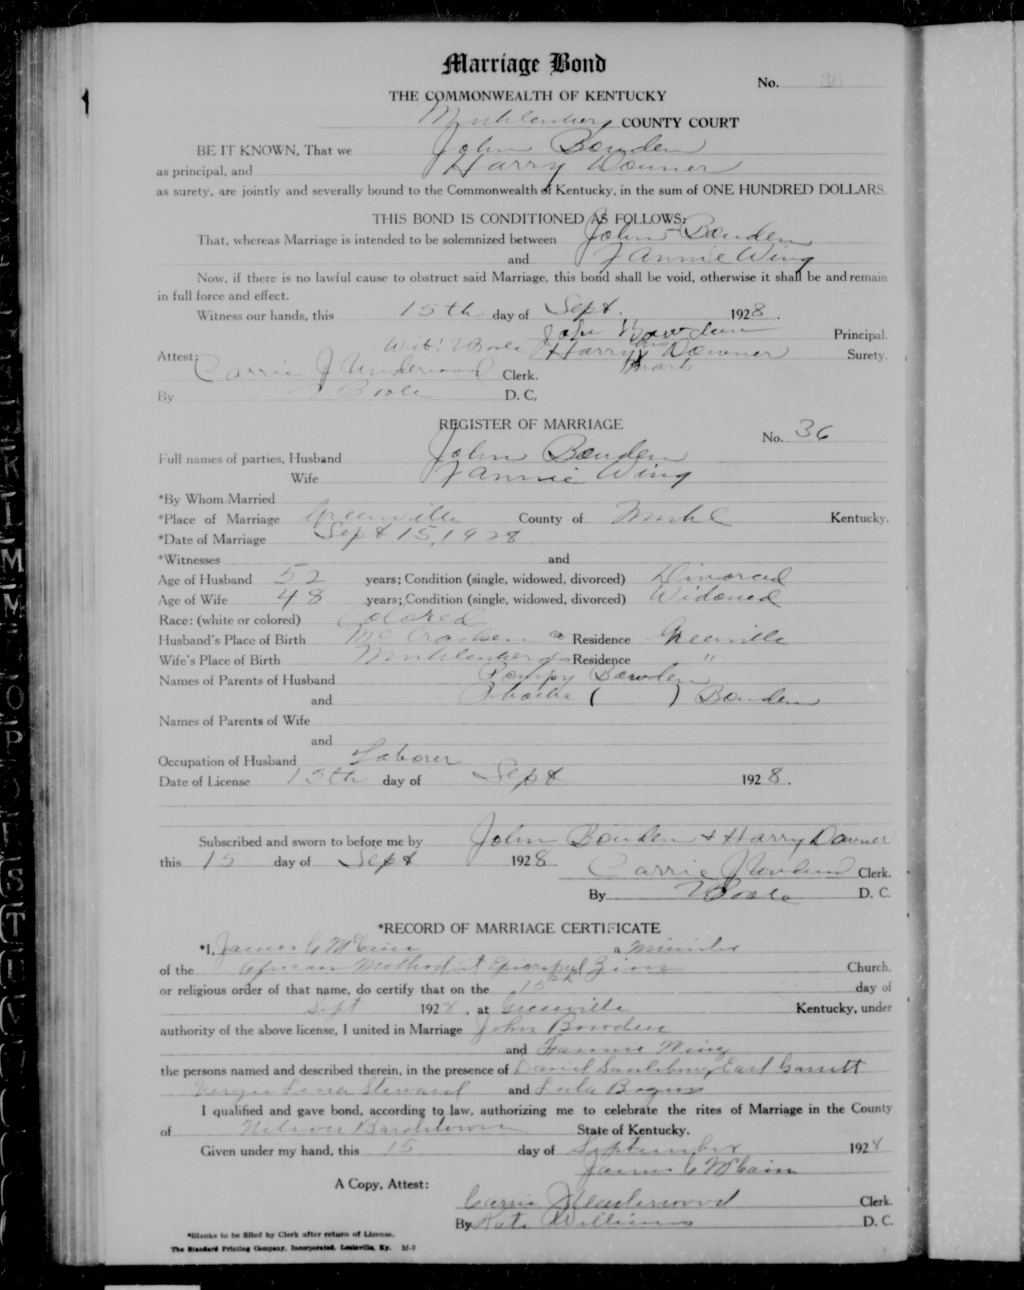 Marriage Bond
No. 36
THE COMMONWEALTH OF KENTUCKY
Muhlenberg COUNTY COURT
BE IT KNOWN, That we John Bowden
as principal, and Harry Downer
as surety, are jointly and severally bound to the Commonwealth of Kentucky, in the sum of ONE HUNDRED DOLLARS.
THIS BOND IS CONDITIONED AS FOLLOWS:
That, whereas Marriage is intended to be solemnized between John Bowden
and Fannie Wing
Now, if there is no lawful cause to obstruct said Marriage, this bond shall be void, otherwise it shall be and remain
in full force and effect.
Witness our hands, this 15th day of Sept. 1928.
John Bowden Principal.
Wit: Harry his Downer Surety.
mark
Attest:
Carrie J Underwood Clerk.
By D. C.
REGISTER OF MARRIAGE
No. 36
Full names of parties, Husband John Bowden
Wife Fannie Wing
*By Whom Married
*Place of Marriage Greenville County of Muhl Kentucky.
*Date of Marriage Sept 15, 1928
*Witnesses and
Age of Husband 52 years; Condition (single, widowed, divorced) Divorced
Age of Wife 48 years; Condition (single, widowed, divorced) Widowed
Race: (white or colored) Colored
Husband's Place of Birth McCracken Co Residence Greenville
Wife's Place of Birth Muhlenberg Co Residence "
Names of Parents of Husband Pompy Bowden
and Phoebe ( ) Bowden
Names of Parents of Wife
and
Occupation of Husband Laborer
Date of License 15th day of Sept 1928.
Subscribed and sworn to before me by John Bowden + Harry Downer
this 15 day of Sept 1928
Carrie J Underwood Clerk.
By D. C.
*RECORD OF MARRIAGE CERTIFICATE
*I, James C McCain a Minister
of the African Methodist Episcopal Zion Church,
or religious order of that name, do certify that on the 15th day of
Sept 1928, at Greenville Kentucky, under
authority of the above license, I united in Marriage John Bowden
and Fannie Wing
the persons named and described therein, in the presence of David Saulsbury Earl Garrett
Lena Steward and Lula
I qualified and gave bond, according to law, authorizing me to celebrate the rites of Marriage in the County
of Nelson Bardstown State of Kentucky.
Given under my hand, this 15 day of September 1928
James C McCain
A Copy, Attest:
Carrie J Underwood Clerk.
By Kate Williams D. C.
*Blanks to be filled by Clerk after return of License.
The Standard Printing Company, Incorporated, Louisville, Ky. M-7